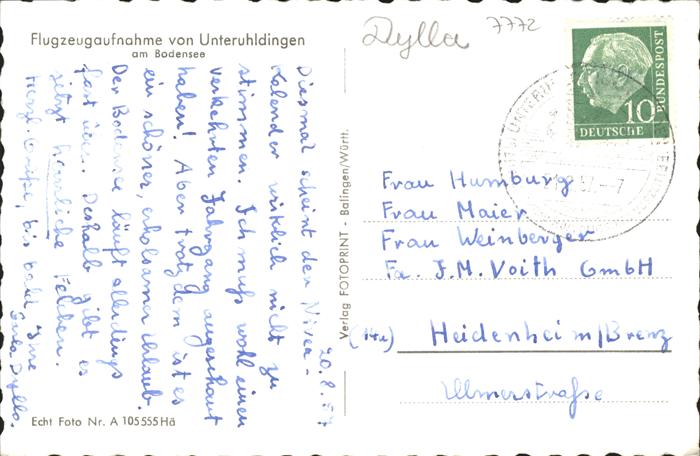 Flugzeugaufnahme von Unteruhldingen
am Bodensee
20.8.57
Diesmal scheint der Nivea-
Kalender wirklich nicht zu
stimmen. Ich muß wohl einen
verkehrten Jahrgang angeschaut
haben! Aber trotzdem ist es
ein schöner, erholsamer Urlaub.
Der Bodensee läuft allerdings
fast über. Deshalb gibt es
jetzt herrliche Felchen.
Herzl. Grüße, bis bald Ihre
Dylla.
Echt Foto Nr. A 105555 Hä
Verlag FOTOPRINT - Balingen/Württ.
Dylla
7772
10
DEUTSCHE
BUNDESPOST
Frau Humburg
Frau Maier
Frau Weinberger
Fa. J.M. Voith GmbH
Heidenheim/Brenz
Ulmerstraße